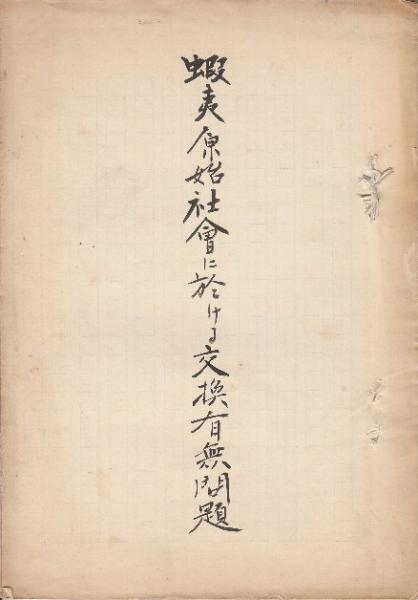 蝦夷原始社會に於ける交換有無問題